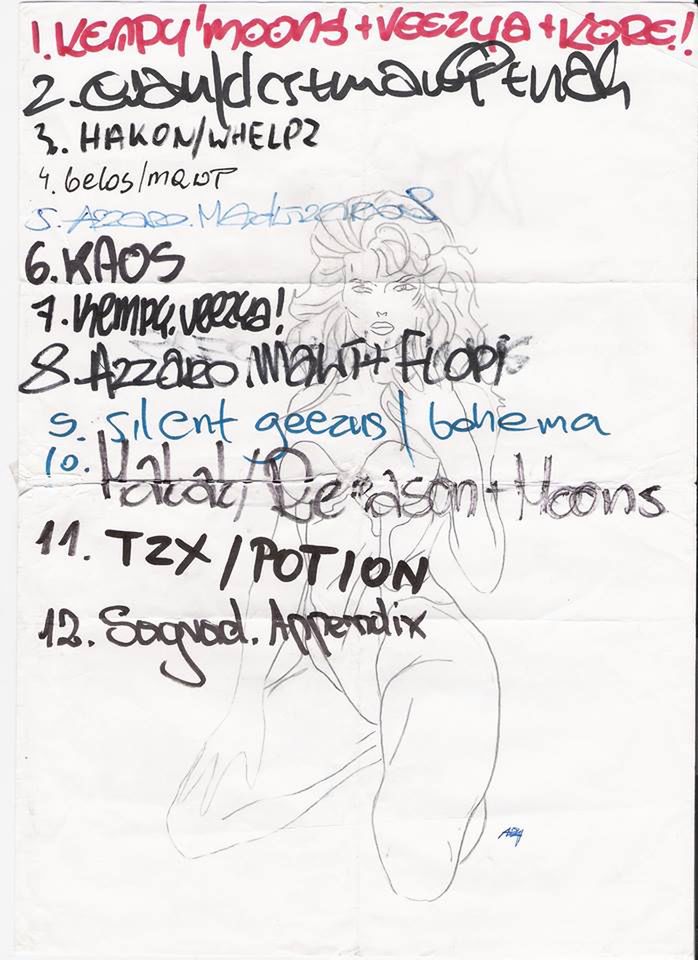 1. KEMPY'MOONS + VEEZYA + KORE!
2.
3. HAKON/WHELPZ
4. belos/MAWT
5. AZZARO.
6. KAOS
7. KEMPY.VEEZYA!
8. AZZARO.MAWT+ FLOPI
9. silent geezus / bohema
10. Makak/ + Moons
11. TZX / POTION
12. Sagvad. Appendix